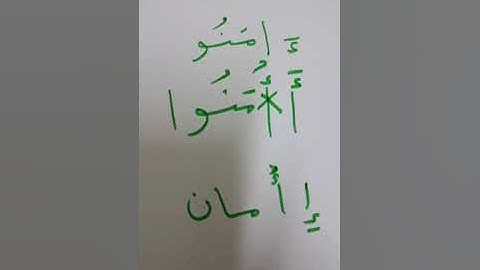 ءَ امَنُو
أَ أْمَنُوا
إِ أْمان